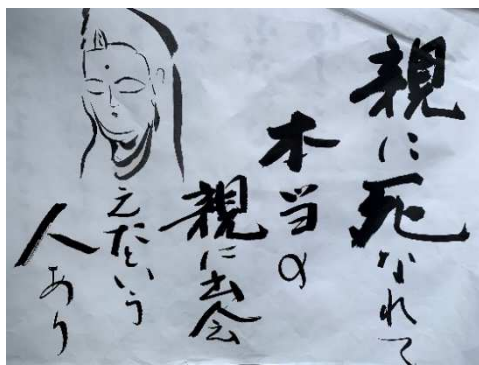 親に死なれて
本当の
親に出会
えたという
人あり